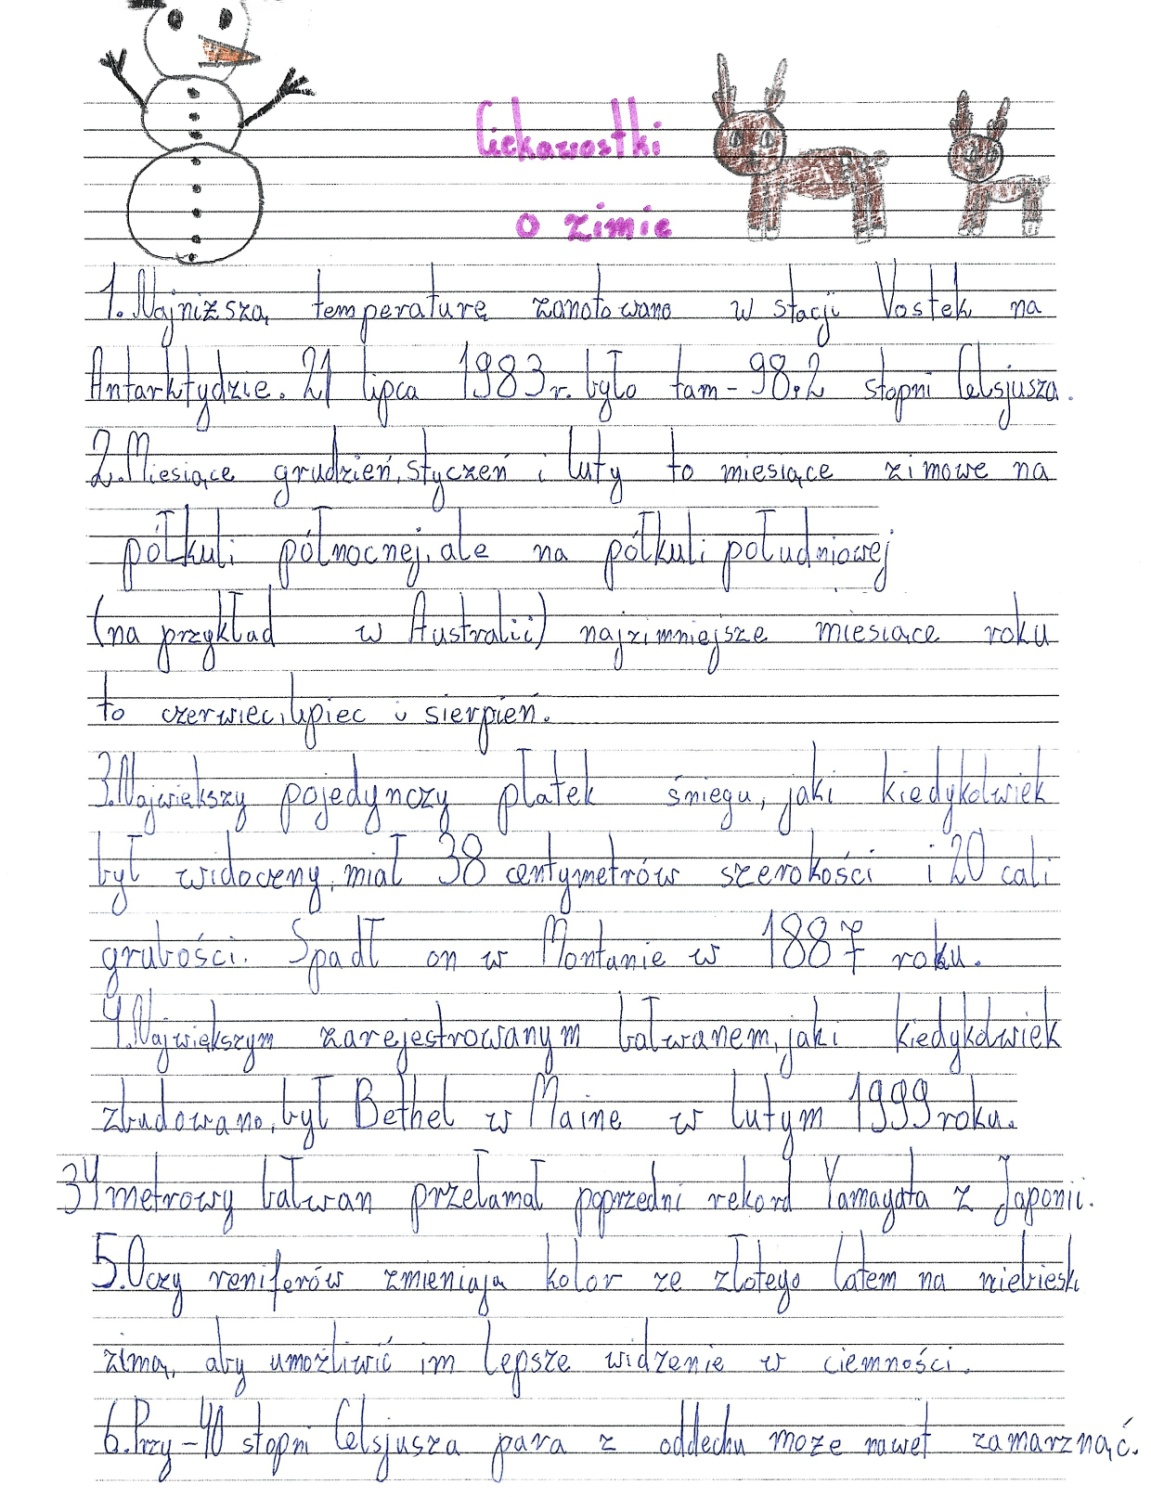 Ciekawostki
o zimie
1. Najniższą temperaturę zanotowano w stacji Vostek na
Antarktydzie. 21 lipca 1983r. było tam -98.2 stopni Celsjusza.
2. Miesiące grudzień, styczeń i luty to miesiące zimowe na
półkuli północnej, ale na półkuli południowej
(na przykład w Australii) najzimniejsze miesiące roku
to czerwiec, lipiec i sierpień.
3. Największy pojedynczy płatek śniegu, jaki kiedykolwiek
był widoczny, miał 38 centymetrów szerokości i 20 cali
grubości. Spadł on w Montanie w 1887 roku.
4. Największym zarejestrowanym bałwanem, jaki kiedykolwiek
zbudowano, był Bethel w Maine w lutym 1999 roku.
34 metrowy bałwan przełamał poprzedni rekord Yamagata z Japonii.
5. Oczy reniferów zmieniają kolor ze złotego latem na niebieski
zimą, aby umożliwić im lepsze widzenie w ciemności.
6. Przy -40 stopni Celsjusza para z oddechu może nawet zamarznąć.